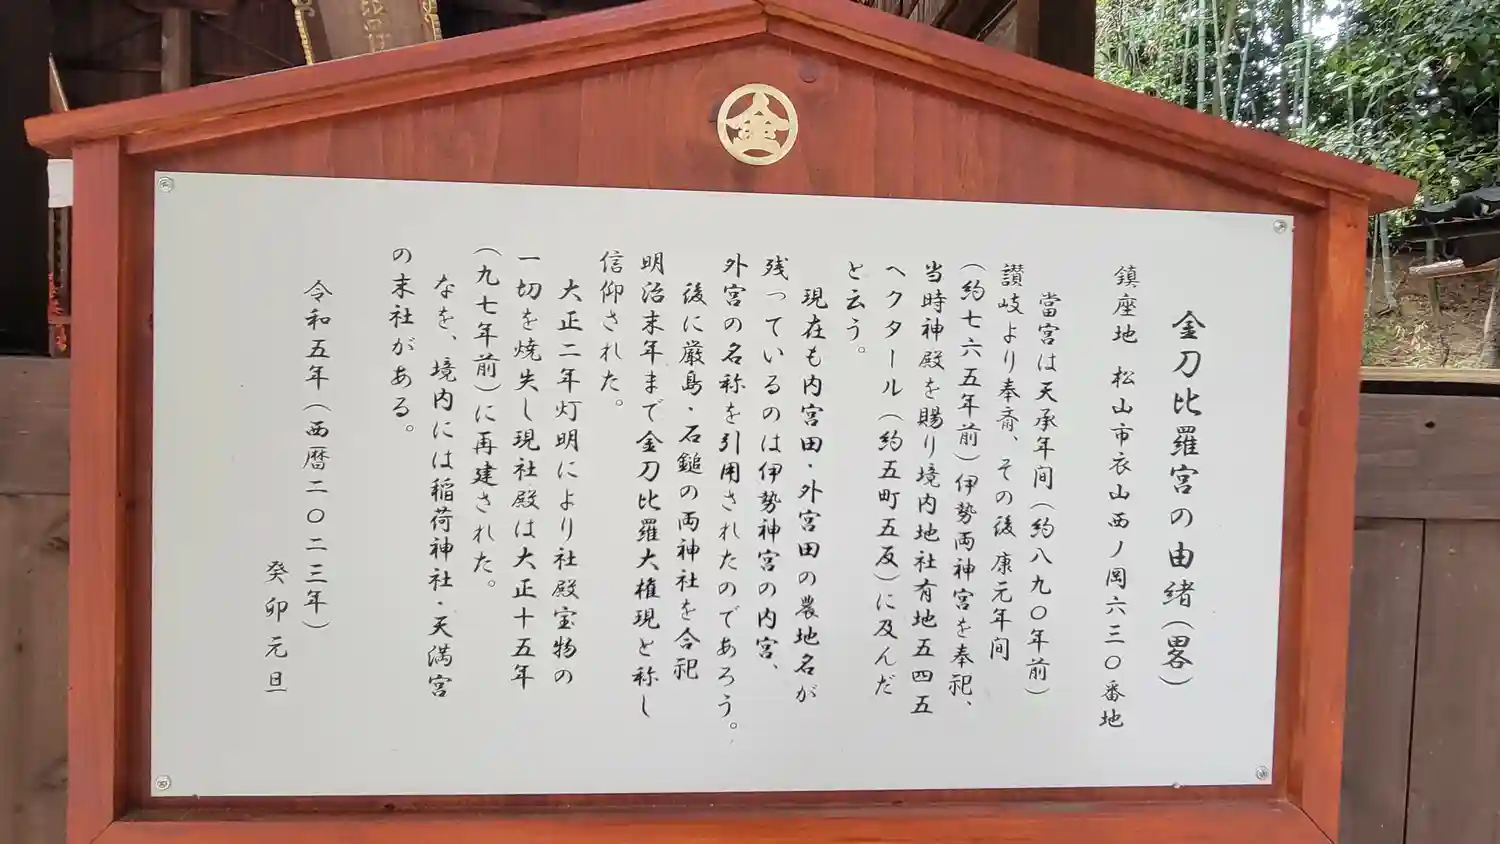 金
金刀比羅宮の由緒(畧)
鎮座地 松山市衣山西ノ岡六三〇番地
當宮は天承年間(約八九〇年前)
讃岐より奉斎、その後康元年間
(約七六五年前)伊勢両神宮を奉祀、
当時神殿を賜り境内地社有地五四五
ヘクタール(約五町五反)に及んだ
と云う。
現在も内宮田・外宮田の農地名が
残っているのは伊勢神宮の内宮、
外宮の名称を引用されたのであろう。
後に厳島・石鎚の両神社を合祀
明治末年まで金刀比羅大権現と称し
信仰された。
大正二年灯明により社殿宝物の
一切を焼失し現社殿は大正十五年
(九七年前)に再建された。
なを、境内には稲荷神社・天満宮
の末社がある。
令和五年(西暦二〇二三年)
癸卯元旦